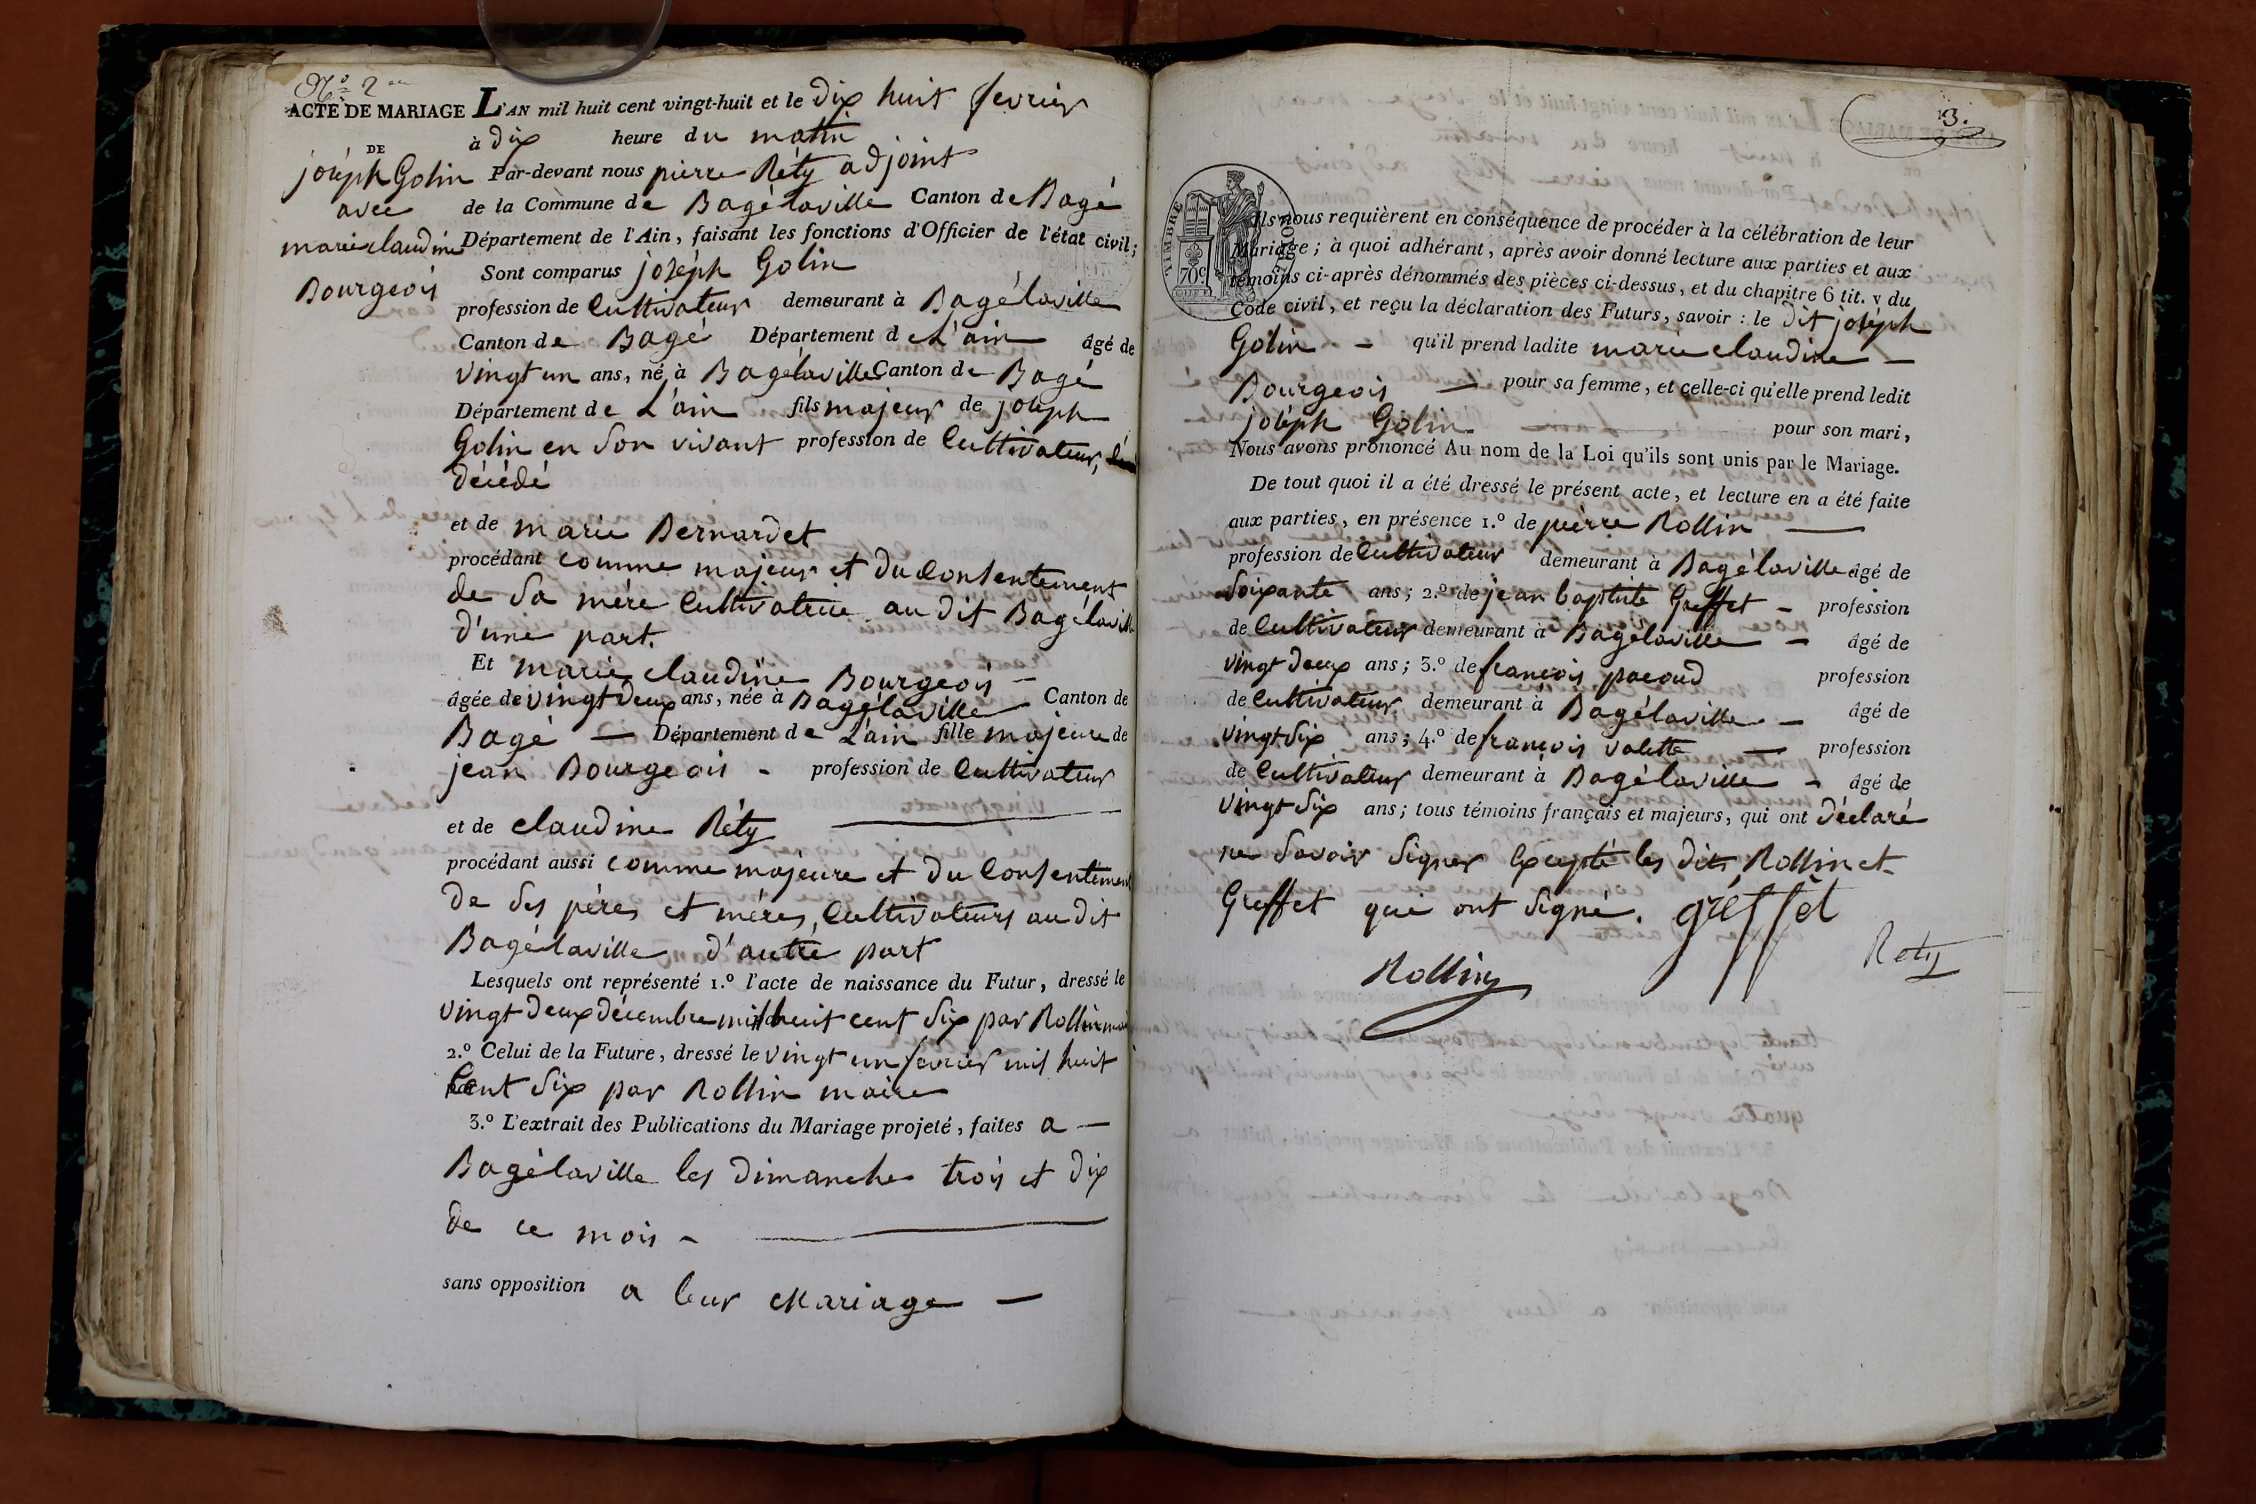 N.º 2
ACTE DE MARIAGE
DE
joséph Golin
avec
marie claudine
Bourgeois
L'AN mil huit cent vingt-huit et le dix huit fevrier
à dix heure du matin
Par-devant nous pierre Réty adjoint
de la Commune de Bagélaville Canton de Bagé
Département de l'Ain, faisant les fonctions d'Officier de l'état civil;
Sont comparus joséph Golin
profession de Cultivateur demeurant à Bagélaville
Canton de Bagé Département de L'ain âgé de
vingt un ans, né à Bagélaville Canton de Bagé
Département de L'ain fils majeur de joseph
Golin en son vivant profession de Cultivateur,
décédé
et de marie Bernardet
procédant comme majeur et du consentement
de sa mére Cultivatrice au dit Bagélaville
d'une part.
Et marie claudine Bourgeois
âgée de vingt deux ans, née à Bagélaville Canton de
Bagé — Département de L'ain fille majeure de
jean Bourgeois - profession de Cultivateur
et de claudine Réty
procédant aussi comme majeure et du Consentement
de ses péres et méres, Cultivateurs au dit
Bagélaville d'autre part
Lesquels ont représenté 1.º l'acte de naissance du Futur, dressé le
vingt deux décembre mil huit cent six par Rollin maire
2.º Celui de la Future, dressé le vingt un fevrier mil huit
Cent six par Rollin maire
3.º L'extrait des Publications du Mariage projeté, faites a —
Bagélaville les dimanche trois et dix
de ce mois -
sans opposition a leur Mariage —
3.
TIMBRE ROYAL
70 c
Ils nous requièrent en conséquence de procéder à la célébration de leur
Mariage; à quoi adhérant, après avoir donné lecture aux parties et aux
témoins ci-après dénommés des pièces ci-dessus, et du chapitre 6 tit. v du
Code civil, et reçu la déclaration des Futurs, savoir : le dit joséph
Golin - qu'il prend ladite marie claudine —
Bourgeois — pour sa femme, et celle-ci qu'elle prend ledit
joséph Golin pour son mari,
Nous avons prononcé Au nom de la Loi qu'ils sont unis par le Mariage.
De tout quoi il a été dressé le présent acte, et lecture en a été faite
aux parties, en présence 1.º de pierre Rollin —
profession de Cultivateur demeurant à Bagélaville âgé de
soixante ans; 2.º de jean baptiste Greffet - profession
de Cultivateur demeurant à Bagélaville - âgé de
vingt deux ans; 3.º de françois pacoud profession
de Cultivateur demeurant à Bagélaville - âgé de
vingt six ans; 4.º de françois valette — profession
de Cultivateur demeurant à Bagélaville - âgé de
vingt six ans; tous témoins français et majeurs, qui ont déclaré
ne savoir signer Excepté les dits Rollin et
Greffet qui ont signé. gréffet
Rollin
Réty